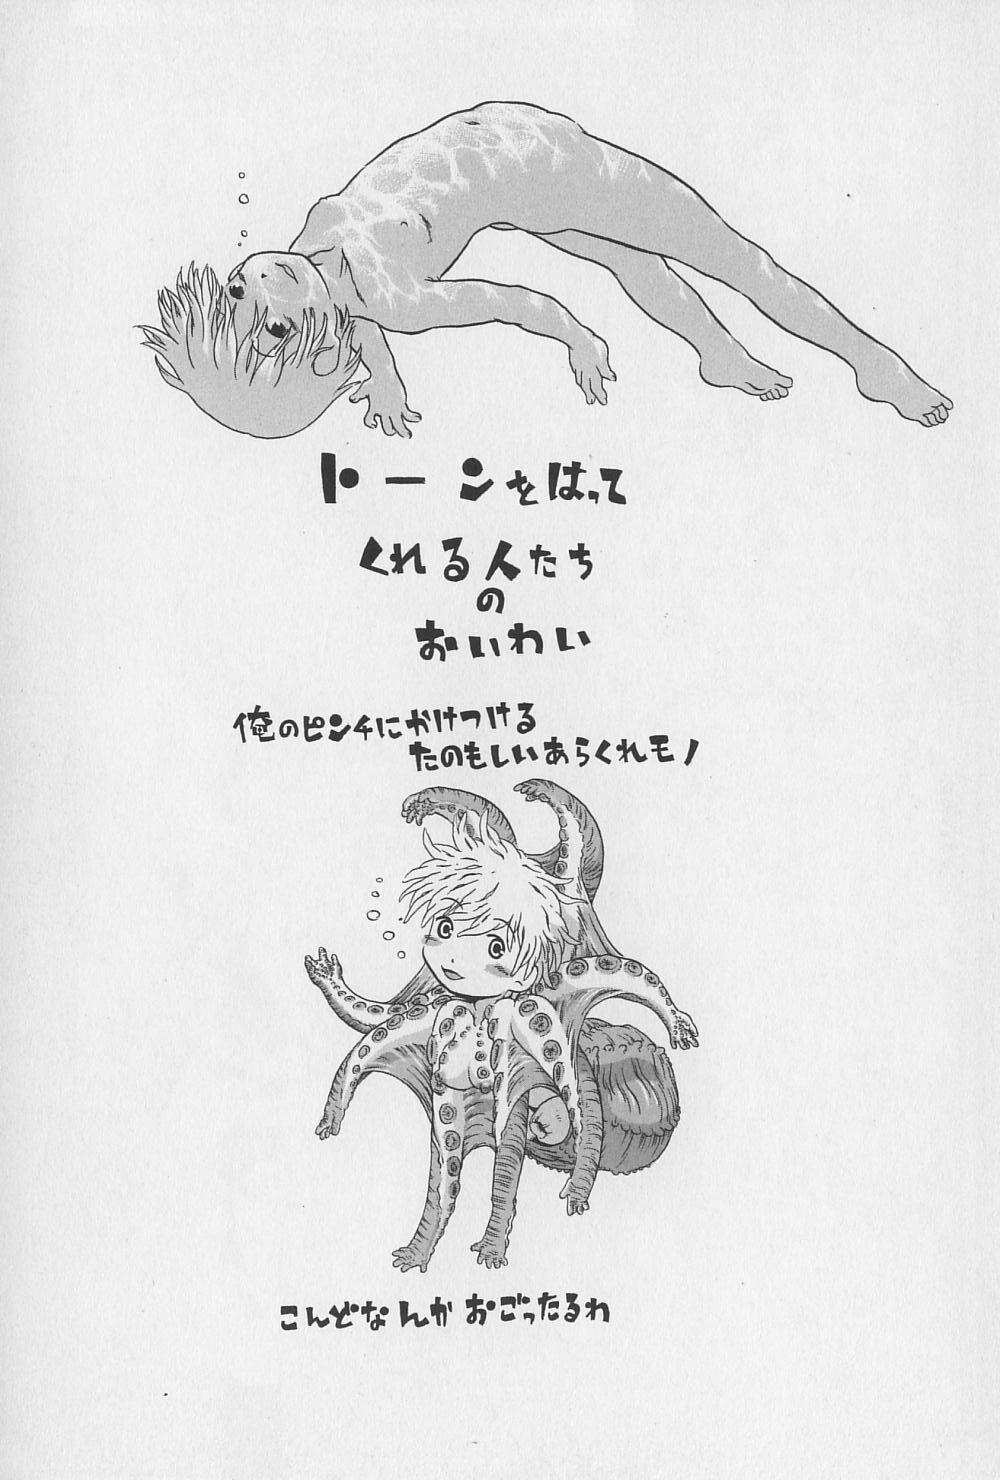 トーンをはって
くれる人たち
の
おいわい
俺のピンチにかけつける
たのもしいあらくれモノ
こんどなんか おごったるわ